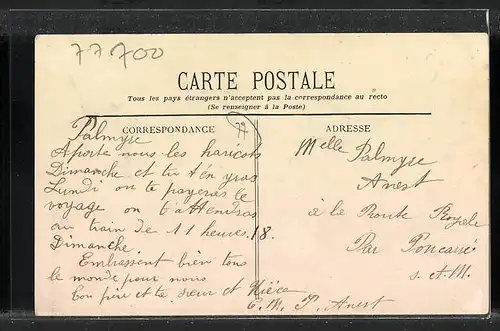 77700
CARTE POSTALE
Tous les pays étrangers n'acceptent pas la correspondance au recto
(Se renseigner à la Poste)
CORRESPONDANCE
Palmyre
Aporte nous les haricots
Dimanche et tu t'en yras
Lundi on te payeras le
voyage on t'attendras
au train de 11 heures 18.
Dimanche.
Embrassent bien tous
le monde pour nous
ton père et ta sœur et Nièce
E. M. P. Anest
ADRESSE
Melle Palmyre
Anest
à la Route Royale
Par
s. et M.